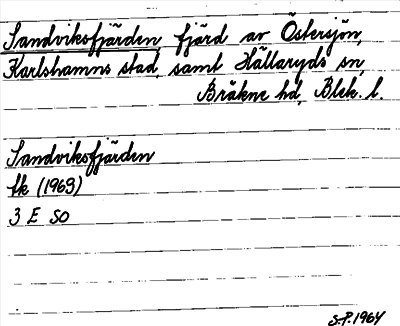 Sandviksfjärden, fjärd av Östersjön,
Karlshamns stad, samt Hällaryds sn,
Bräkne hd, Blek. l.
Sandviksfjärden
Ek (1969)
3 E SO
S.P. 1964